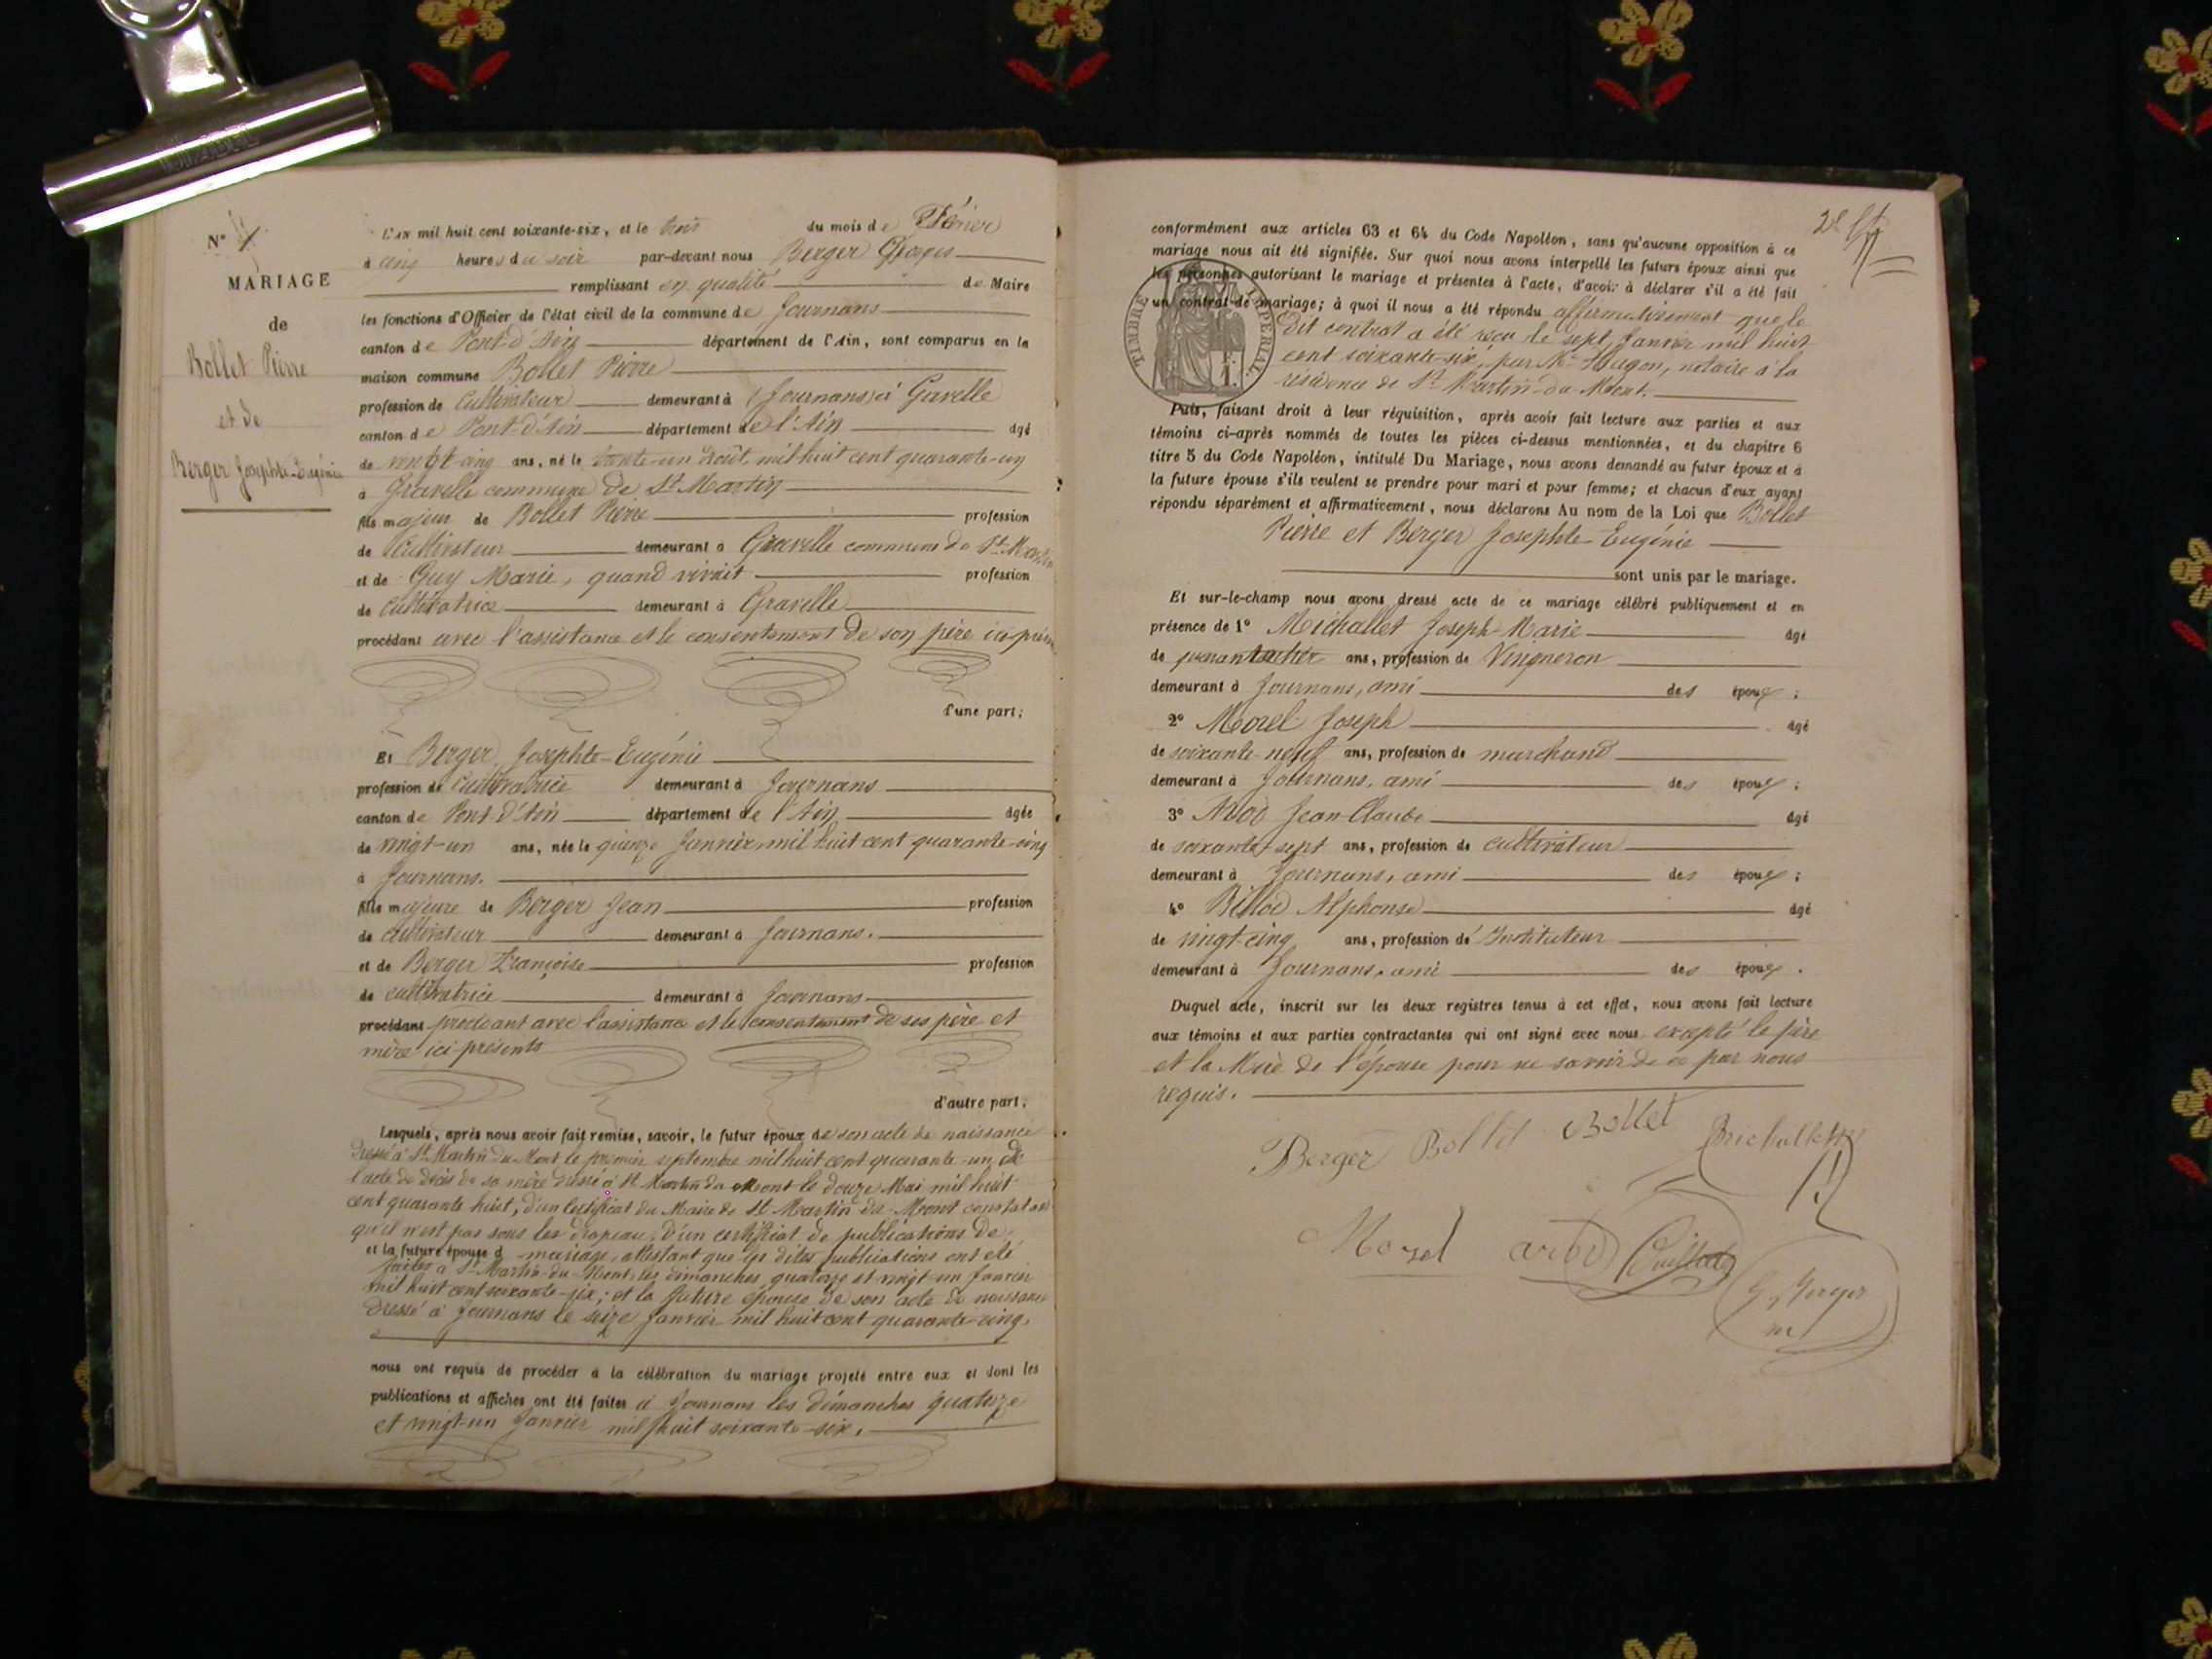 N° 1
MARIAGE
de
Bollet Pierre
et de
Berger Josephte-Eugénie
L'AN mil huit cent soixante-six, et le trois du mois de Février
à cinq heures du soir par-devant nous Berger Georges
remplissant en qualité de Maire
les fonctions d'Officier de l'état civil de la commune de Journans
canton de Pont-d'Ain département de l'Ain, sont comparus en la
maison commune Bollet Pierre
profession de Cultivateur demeurant à (Journans) à Gravelle
canton de Pont-d'Ain département de l'Ain âgé
de vingt-cinq ans, né le trente-un Août mil huit cent quarante-un
à Gravelle commune de St Martin
fils majeur de Bollet Pierre profession
de Cultivateur demeurant à Gravelle commune de St Martin
et de Guy Marie, quand vivait profession
de cultivatrice demeurant à Gravelle
procédant avec l'assistance et le consentement de son père ici-présent
d'une part;
Et Berger Josephte-Eugénie
profession de Cultivatrice demeurant à Journans
canton de Pont-d'Ain département de l'Ain âgée
de vingt-un ans, née le quinze Janvier mil huit cent quarante-cinq
à Journans.
fille majeure de Berger Jean profession
de cultivateur demeurant à Journans.
et de Berger Françoise profession
de cultivatrice demeurant à Journans
procédant procédant avec l'assistance et le consentement de ses père et
mère ici présents
d'autre part.
Lesquels, après nous avoir fait remise, savoir, le futur époux de son acte de naissance
dressé à St Martin-du-Mont le premier septembre mil huit cent quarante-un, de
l'acte de décès de sa mère dressé à St Martin du Mont le douze Mai mil huit
cent quarante huit, d'un certificat du Maire de St Martin du Mont constatant
qu'il n'est pas sous les drapeau, D'un certificat de publications de
et la future épouse d mariage, attestant que les dites publications ont été
faites à St Martin-du-Mont, les dimanches quatorze et vingt-un Janvier
mil huit cent soixante-six; et la future épouse de son acte de naissance
dressé à Journans le seize Janvier mil huit cent quarante-cinq.
nous ont requis de procéder à la célébration du mariage projeté entre eux et dont les
publications et affiches ont été faites à Journans les dimanches quatorze
et vingt-un Janvier mil huit soixante-six.
conformément aux articles 63 et 64 du Code Napoléon, sans qu'aucune opposition à ce
mariage nous ait été signifiée. Sur quoi nous avons interpellé les futurs époux ainsi que
les personnes autorisant le mariage et présentes à l'acte, d'avoir à déclarer s'il a été fait
un contrat de mariage; à quoi il nous a été répondu affirmativement que le
dit contrat a été reçu le sept Janvier mil huit
cent soixante-six, par Me Hugon, notaire à la
résidence de St Martin-du-Mont.
TIMBRE IMPERIAL
1 F.
Puis, faisant droit à leur réquisition, après avoir fait lecture aux parties et aux
témoins ci-après nommés de toutes les pièces ci-dessus mentionnées, et du chapitre 6
titre 5 du Code Napoléon, intitulé Du Mariage, nous avons demandé au futur époux et à
la future épouse s'ils veulent se prendre pour mari et pour femme; et chacun d'eux ayant
répondu séparément et affirmativement, nous déclarons Au nom de la Loi que Bollet
Pierre et Berger Josephte-Eugénie
sont unis par le mariage.
Et sur-le-champ nous avons dressé acte de ce mariage célébré publiquement et en
présence de 1° Michallet Joseph-Marie âgé
de ans, profession de Vingneron
demeurant à Journans, ami des époux;
2° Morel Joseph âgé
de soixante-neuf ans, profession de marchand
demeurant à Journans, ami des époux;
3° Arod Jean-Claude âgé
de soixante-sept ans, profession de cultivateur
demeurant à Journans, ami des époux;
4° Billod Alphonse âgé
de vingt-cinq ans, profession de Instituteur
demeurant à Journans, ami des époux.
Duquel acte, inscrit sur les deux registres tenus à cet effet, nous avons fait lecture
aux témoins et aux parties contractantes qui ont signé avec nous excepté le père
et la Mère de l'épouse pour ne savoir de ce par nous
requis.
Berger Bollet Bollet Michallet
Morel arod Billod
G. Berger
m